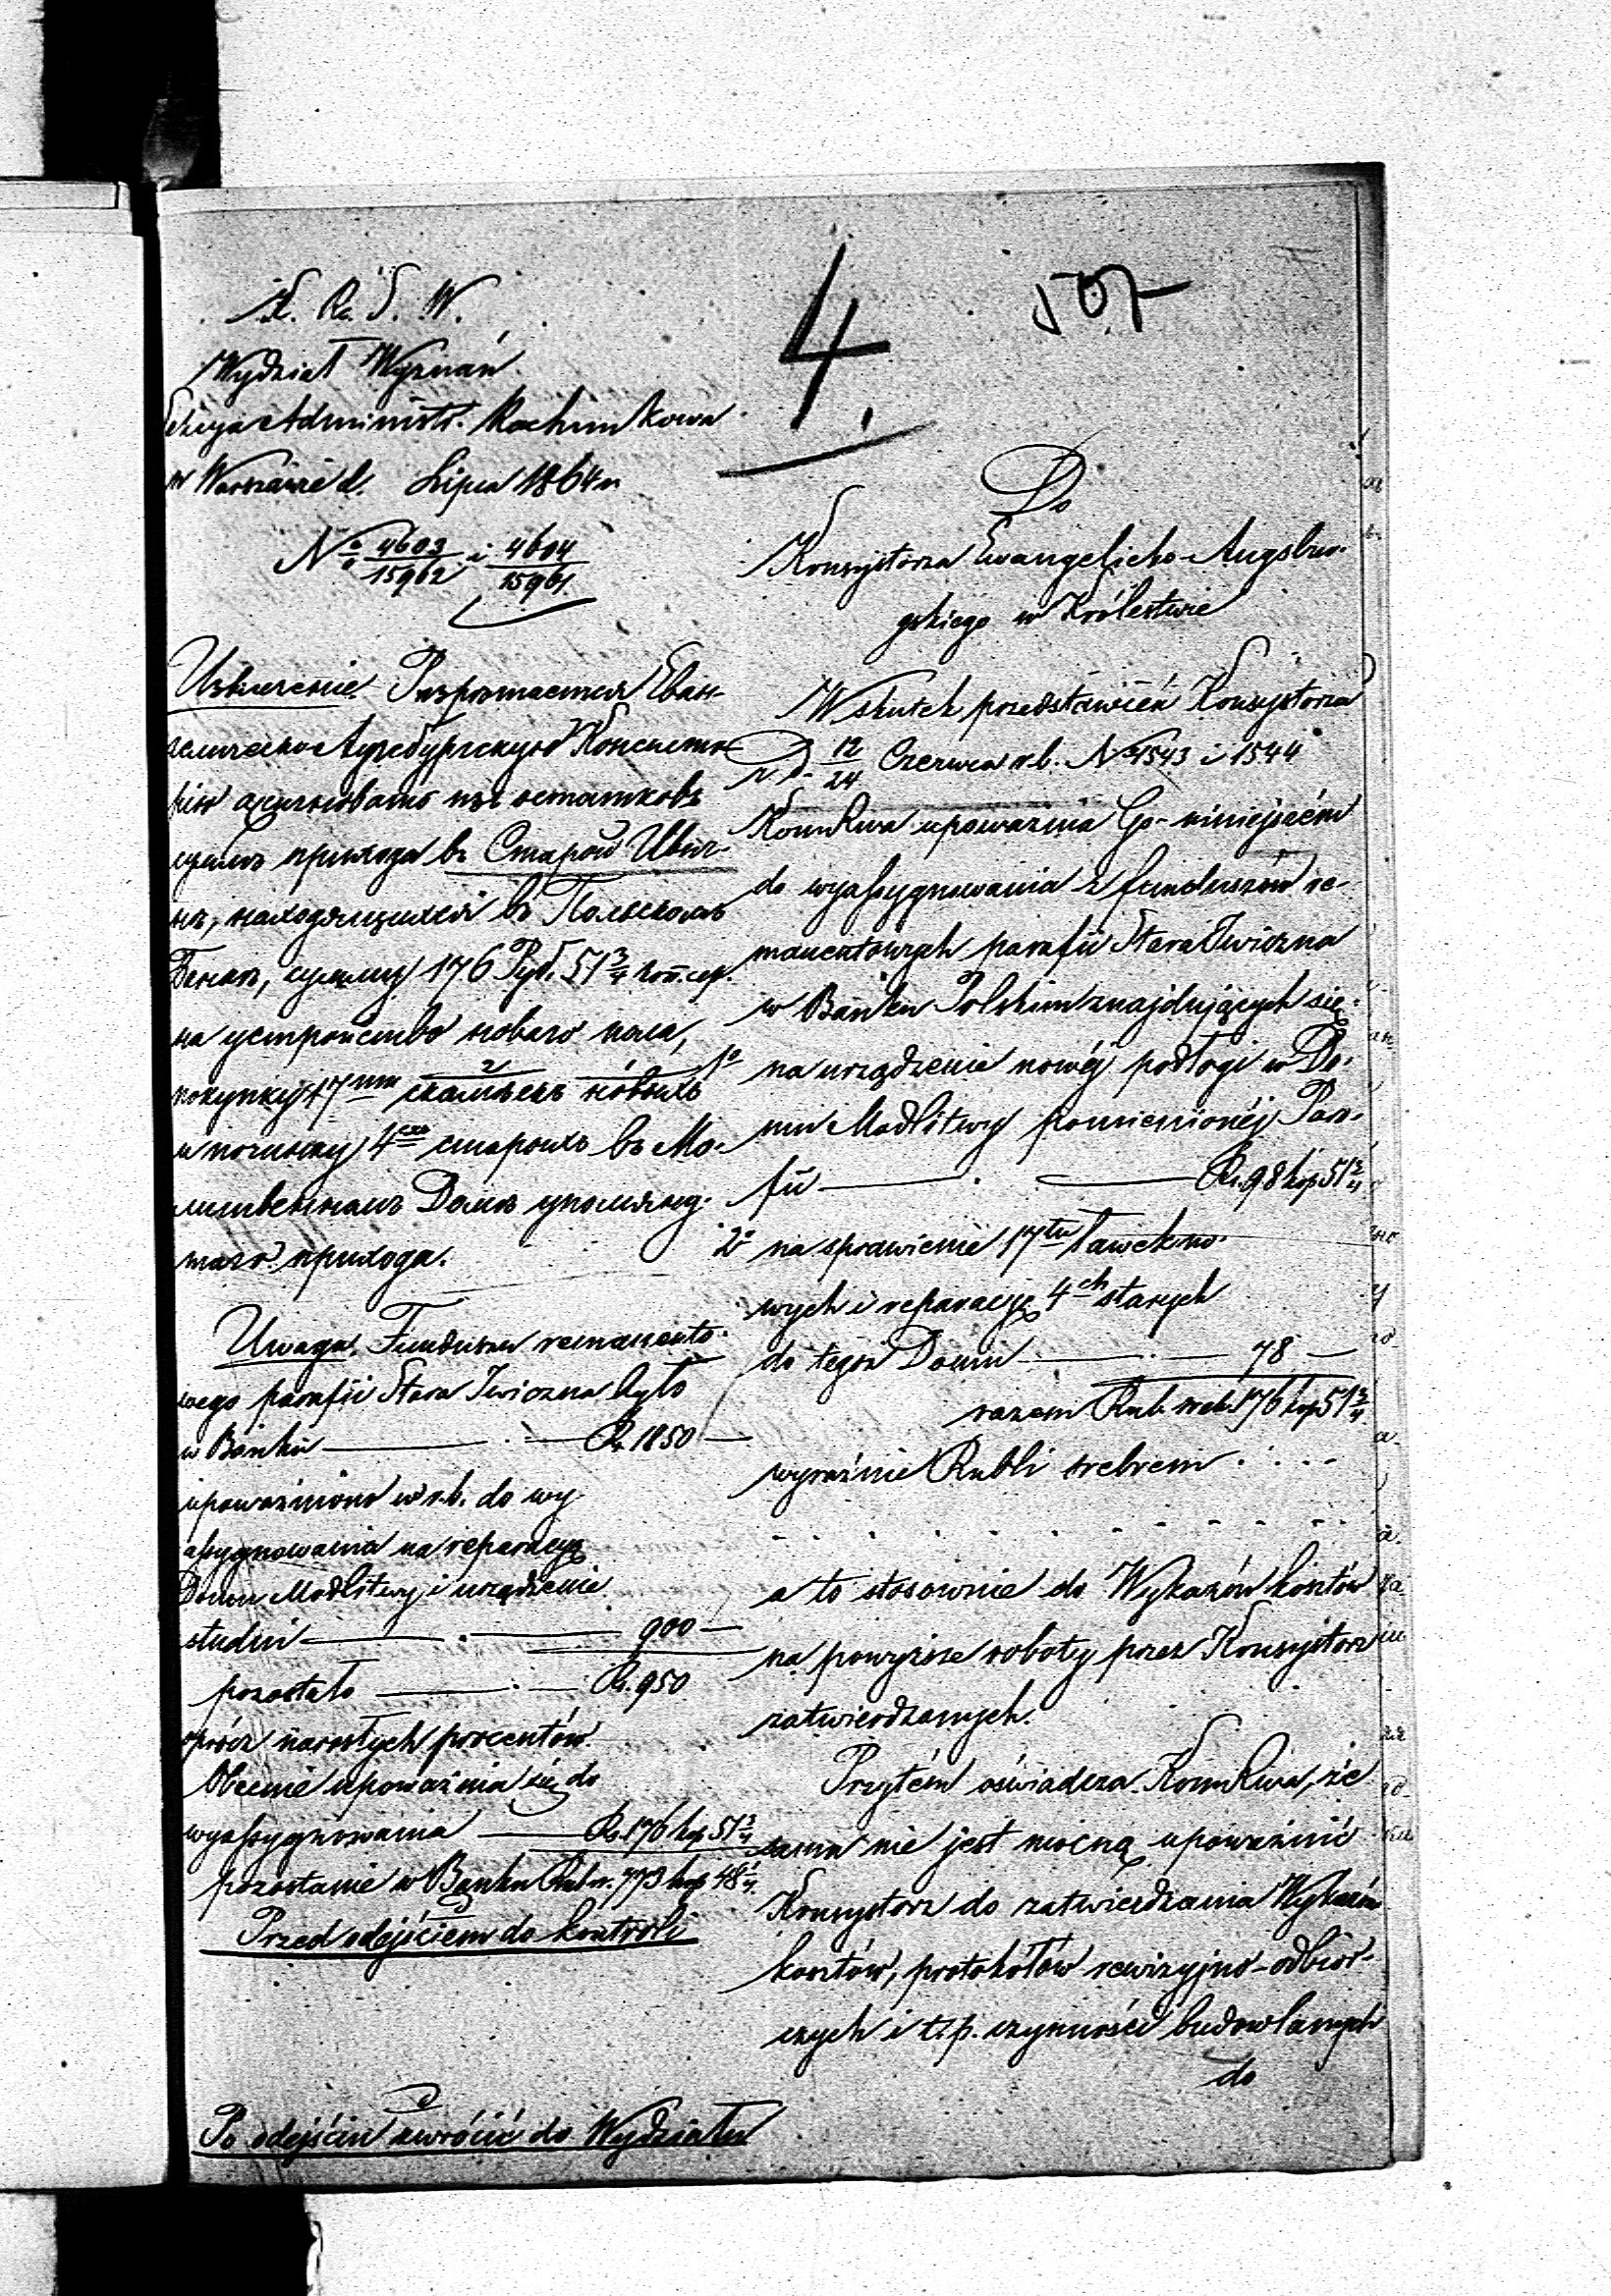 4.
507
K. R. S. W.
Wydział Wyznań
Sekcya Administr. Rachunkowa
w Warszawie d. Lipca 1864 r.
No 4603/15962 i 4604/15961.
Извлеченіе. Разрѣшается Еван-
гелическо-Аугсбургскую Консисто-
рію ассигновать изъ остатковъ
суммъ прихода въ Старой Ивич-
нѣ, находящихся въ Польскомъ
Банкѣ, сумму 176 Руб. 51 3/4 коп. сер.
на устройство новаго пола,
покупку 17ти скамеекъ новыхъ
и починку 4хъ старыхъ въ Мо-
литвенномъ Домѣ упомяну-
таго прихода.
Uwaga. Fundusza remanento-
wego parafii Stara Iwiczna było
w Banku — Rs. 1850 —
upoważniono w r. b. do wy-
assygnowania na reparacyę
Domu Modlitwy i urządzenie
studni — 900 —
pozostało — Rs. 950
oprócz narosłych procentów.
Obecnie upoważnia się do
wyassygnowania — Rs. 176 kop. 51 3/4
pozostanie w Banku Rub. sr. 773 kop. 48 1/4.
Przed odejściem do kontroli
Po odejściu zwrócić do Wydziału
Do
Konsystorza Ewangelicko-Augsbur-
gskiego w Królestwie
W skutek przedstawień Konsystorza
z d. 12/24 Czerwca r. b. No 1543 i 1544
Kom Rwa upoważnia Go niniejszém
do wyassygnowania z funduszów re-
manentowych parafii Stara Iwiczna
w Banku Polskim znajdujących się:
1o na urządzenie nowéj podłogi w Do-
mu Modlitwy pomienionéj Para-
fii — Rs. 98 kop. 51 3/4
2o na sprawienie 17tu ławek no-
wych i reparacyę 4ch starych
do tegoż Domu — 78 —
razem Rub. sreb. 176 kop. 51 3/4
wyraźnie Rubli srebrem . . . .
. . . . . . . . . . . .
a to stosownie do Wykazów kosztów
na powyższe roboty przez Konsystorz
zatwierdzanych.
Przytém oświadcza Kom Rwa, że
sama nie jest mocną upoważnić
Konsystorz do zatwierdzania Wykazów
kosztów, protokółów rewizyjno-odbior-
czych i t. p. czynności budowlanych
do